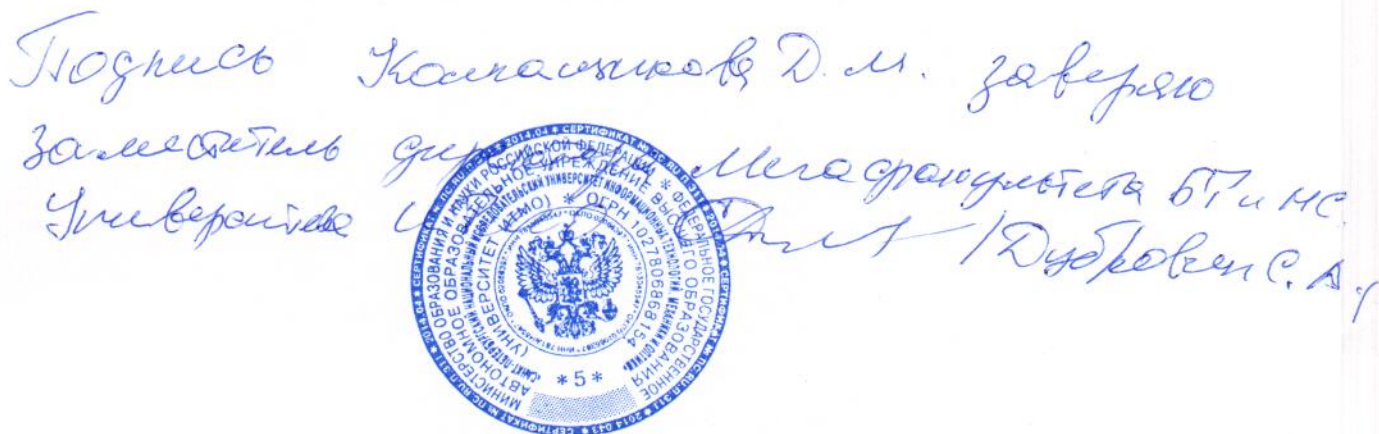 Подпись Колпащикова Д. М. заверяю
Заместитель директора Мегафакультета БТ и НС
Университета
/Дубровин С. А./
СЕРТИФИКАТ № ПС.RU.П.311 * 2014.04
МИНИСТЕРСТВО ОБРАЗОВАНИЯ И НАУКИ РОССИЙСКОЙ ФЕДЕРАЦИИ * ФЕДЕРАЛЬНОЕ ГОСУДАРСТВЕННОЕ
АВТОНОМНОЕ ОБРАЗОВАТЕЛЬНОЕ УЧРЕЖДЕНИЕ ВЫСШЕГО ОБРАЗОВАНИЯ
«САНКТ-ПЕТЕРБУРГСКИЙ НАЦИОНАЛЬНЫЙ ИССЛЕДОВАТЕЛЬСКИЙ УНИВЕРСИТЕТ ИНФОРМАЦИОННЫХ ТЕХНОЛОГИЙ, МЕХАНИКИ И ОПТИКИ»
(УНИВЕРСИТЕТ ИТМО) * ОГРН 1027806868154
*5*